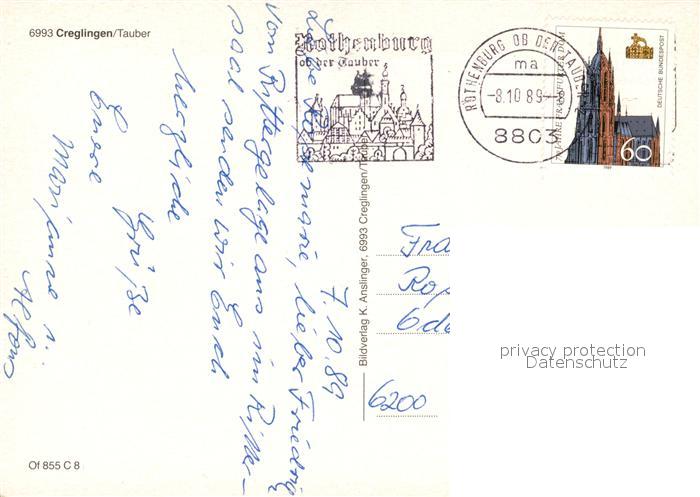 6993 Creglingen/Tauber
Rothenburg
ob der Tauber
ROTHENBURG OB DER TAUBER
ma
-8.10.89-
8803
DEUTSCHE BUNDESPOST
60
7.10.89
Liebe Rosemarie, lieber Friedrich
vom Rittergelage aus im Ritter-
saal senden wir Euch
herzliche
Grüße
Euere
Marianne u.
Alfons
Bildverlag K. Anslinger, 6993 Creglingen/Tauber
Fra
Ro
6200
privacy protection
Datenschutz
Of 855 C 8